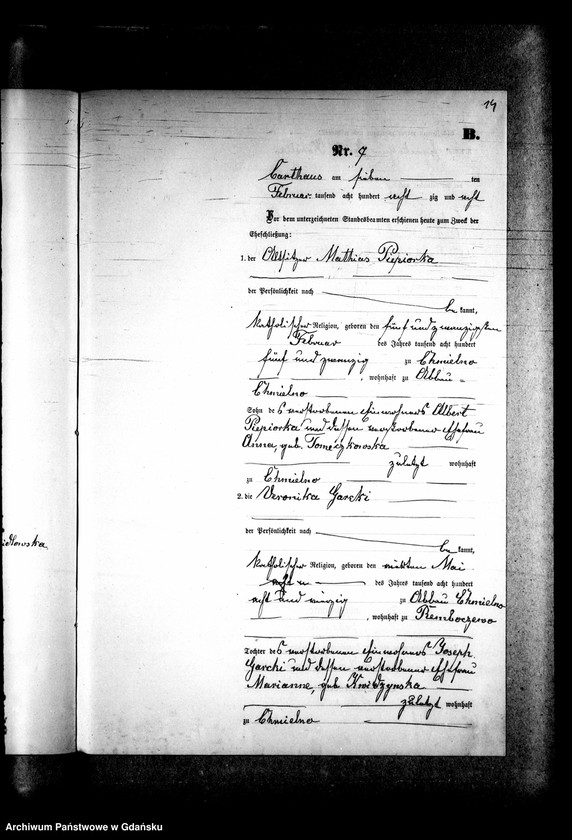 14
B.
Nr. 7
Carthaus am sieben ten
Februar tausend acht hundert acht zig und acht
Vor dem unterzeichneten Standesbeamten erschienen heute zum Zweck der
Eheschließung:
1. der Altsitzer Mathias Piepiorka
der Persönlichkeit nach
be kannt,
katholischer Religion, geboren den fünf und zwanzigsten
Februar des Jahres tausend acht hundert
fünf und zwanzig zu Chmielno
, wohnhaft zu Abbau-
Chmielno
Sohn des verstorbenen Einwohners Albert
Piepiorka und dessen verstorbener Ehefrau
Anna, geb. Tomeczkowska
zuletzt wohnhaft
zu Chmielno
2. die Veronika Garcki
der Persönlichkeit nach
be kannt,
katholischer Religion, geboren den achten Mai
des Jahres tausend acht hundert
acht und vierzig zu Abbau Chmielno
, wohnhaft zu Remboczewo
Tochter des verstorbenen Einwohners Joseph
Garcki und dessen verstorbener Ehefrau
Marianne, geb. Kwidzynska
zuletzt wohnhaft
zu Chmielno
idlowska
Archiwum Państwowe w Gdańsku